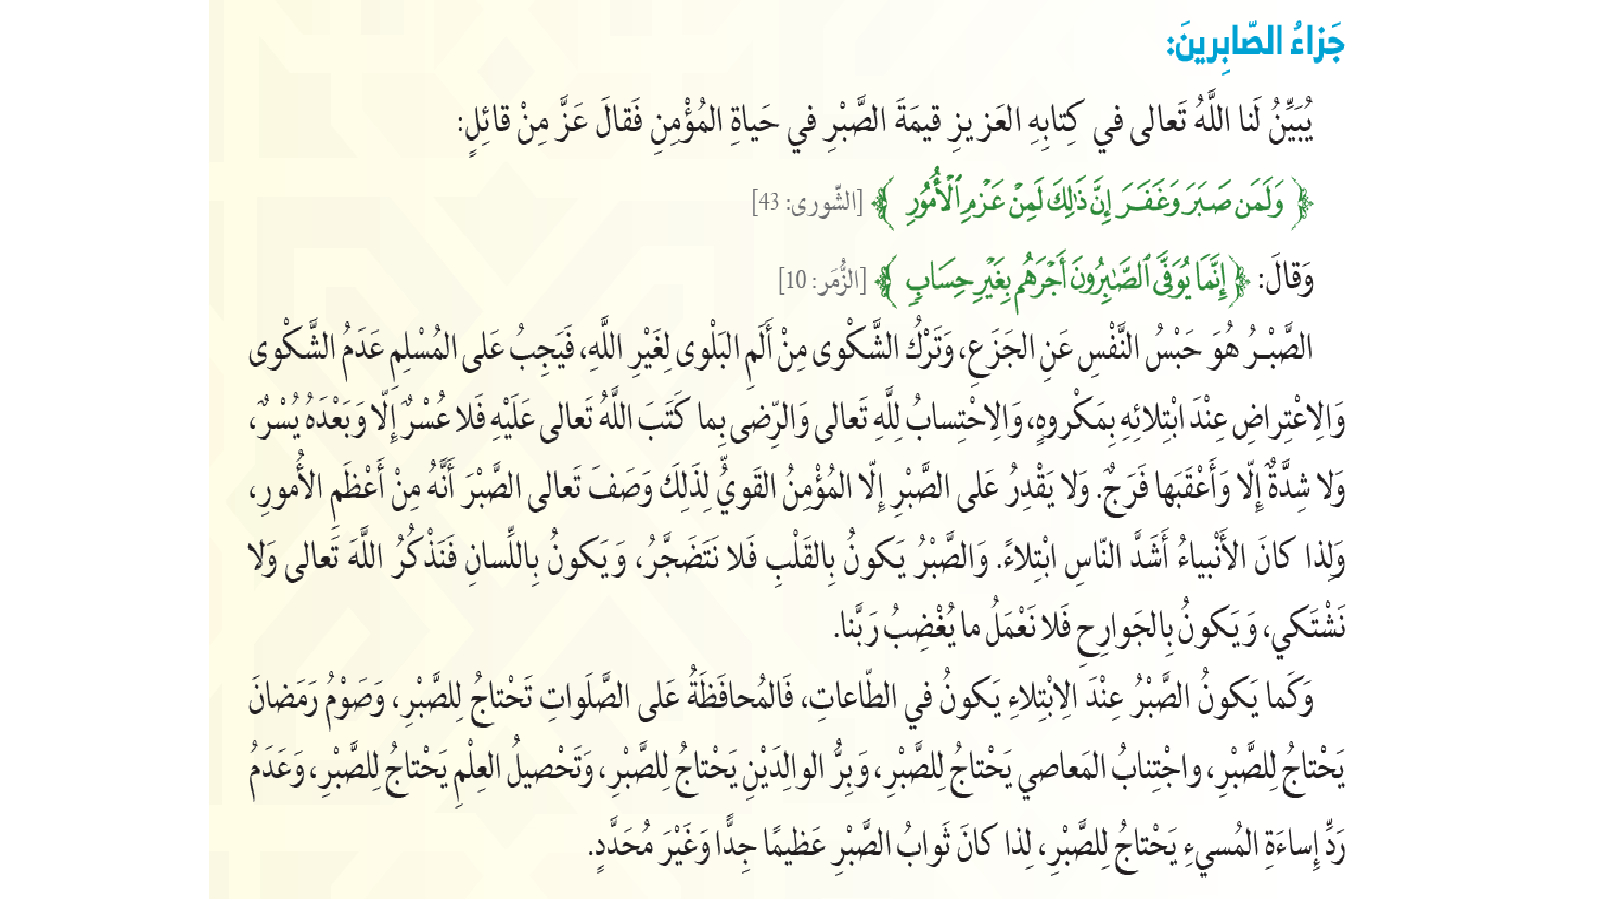 جَزاءُ الصّابِرينَ:
يُبَيِّنُ لَنا اللَّهُ تَعالى في كِتابِهِ العَزيزِ قيمَةَ الصَّبْرِ في حَياةِ المُؤْمِنِ فَقالَ عَزَّ مِنْ قائِلٍ:
﴿ وَلَمَن صَبَرَ وَغَفَرَ إِنَّ ذَٰلِكَ لَمِنْ عَزْمِ ٱلْأُمُورِ ﴾ [الشّورى: 43]
وَقالَ: ﴿ إِنَّمَا يُوَفَّى ٱلصَّٰبِرُونَ أَجْرَهُم بِغَيْرِ حِسَابٍ ﴾ [الزُّمَر: 10]
الصَّبْـرُ هُوَ حَبْسُ النَّفْسِ عَنِ الجَزَعِ، وَتَرْكُ الشَّكْوى مِنْ أَلَمِ البَلْوى لِغَيْرِ اللَّهِ، فَيَجِبُ عَلى المُسْلِمِ عَدَمُ الشَّكْوى
وَالِاعْتِراضِ عِنْدَ ابْتِلائِهِ بِمَكْروهٍ، وَالِاحْتِسابُ لِلَّهِ تَعالى وَالرِّضى بِما كَتَبَ اللَّهُ تَعالى عَلَيْهِ فَلا عُسْرٌ إِلّا وَبَعْدَهُ يُسْرٌ،
وَلا شِدَّةٌ إِلّا وَأَعْقَبَها فَرَجٌ. وَلا يَقْدِرُ عَلى الصَّبْرِ إِلّا المُؤْمِنُ القَوِيُّ لِذَلِكَ وَصَفَ تَعالى الصَّبْرَ أَنَّهُ مِنْ أَعْظَمِ الأُمورِ،
وَلِذا كانَ الأَنْبياءُ أَشَدَّ النّاسِ ابْتِلاءً. وَالصَّبْرُ يَكونُ بِالقَلْبِ فَلا نَتَضَجَّرُ، وَيَكونُ بِاللِّسانِ فَنَذْكُرُ اللَّهَ تَعالى وَلا
نَشْتَكي، وَيَكونُ بِالجَوارِحِ فَلا نَعْمَلُ ما يُغْضِبُ رَبَّنا.
وَكَما يَكونُ الصَّبْرُ عِنْدَ الِابْتِلاءِ يَكونُ في الطّاعاتِ، فَالمُحافَظَةُ عَلى الصَّلَواتِ تَحْتاجُ لِلصَّبْرِ، وَصَوْمُ رَمَضانَ
يَحْتاجُ لِلصَّبْرِ، واجْتِنابُ المَعاصي يَحْتاجُ لِلصَّبْرِ، وَبِرُّ الوالِدَيْنِ يَحْتاجُ لِلصَّبْرِ، وَتَحْصيلُ العِلْمِ يَحْتاجُ لِلصَّبْرِ، وَعَدَمُ
رَدِّ إِساءَةِ المُسيءِ يَحْتاجُ لِلصَّبْرِ، لِذا كانَ ثَوابُ الصَّبْرِ عَظيمًا جِدًّا وَغَيْرَ مُحَدَّدٍ.